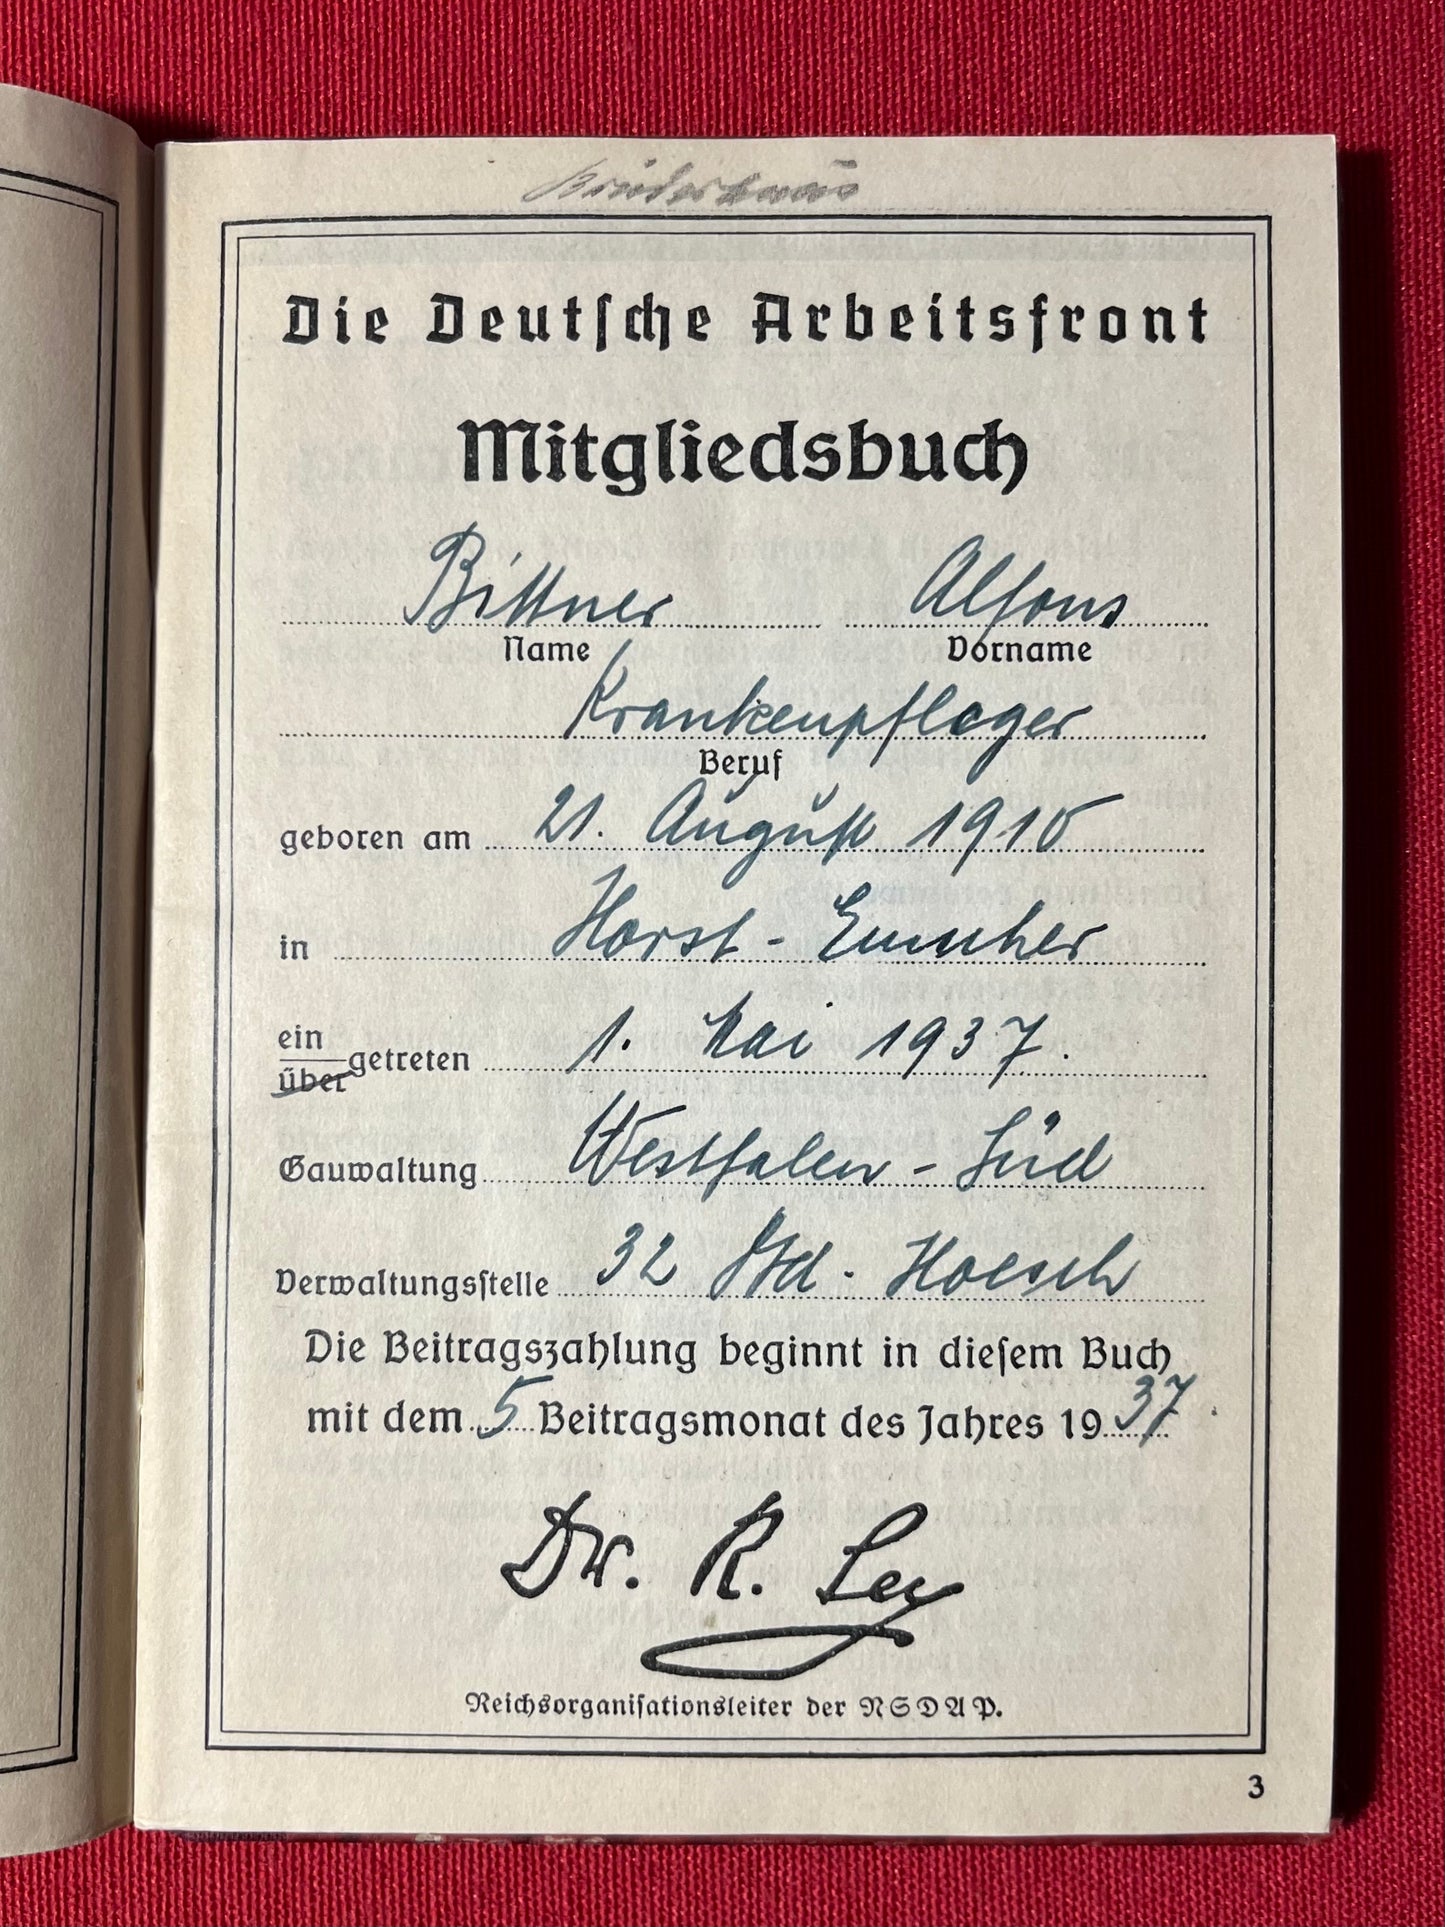 Bruderhaus
Die Deutsche Arbeitsfront
Mitgliedsbuch
Bittner Alfons
Name Vorname
Krankenpfleger
Beruf
geboren am 21. August 1910
in Horst-Emscher
ein
über getreten 1. Mai 1937.
Gauwaltung Westfalen-Süd
Verwaltungsstelle 32 Std-Hoesch
Die Beitragszahlung beginnt in diesem Buch
mit dem 5 Beitragsmonat des Jahres 1937
Dr. R. Ley
Reichsorganisationsleiter der NSDAP.
3